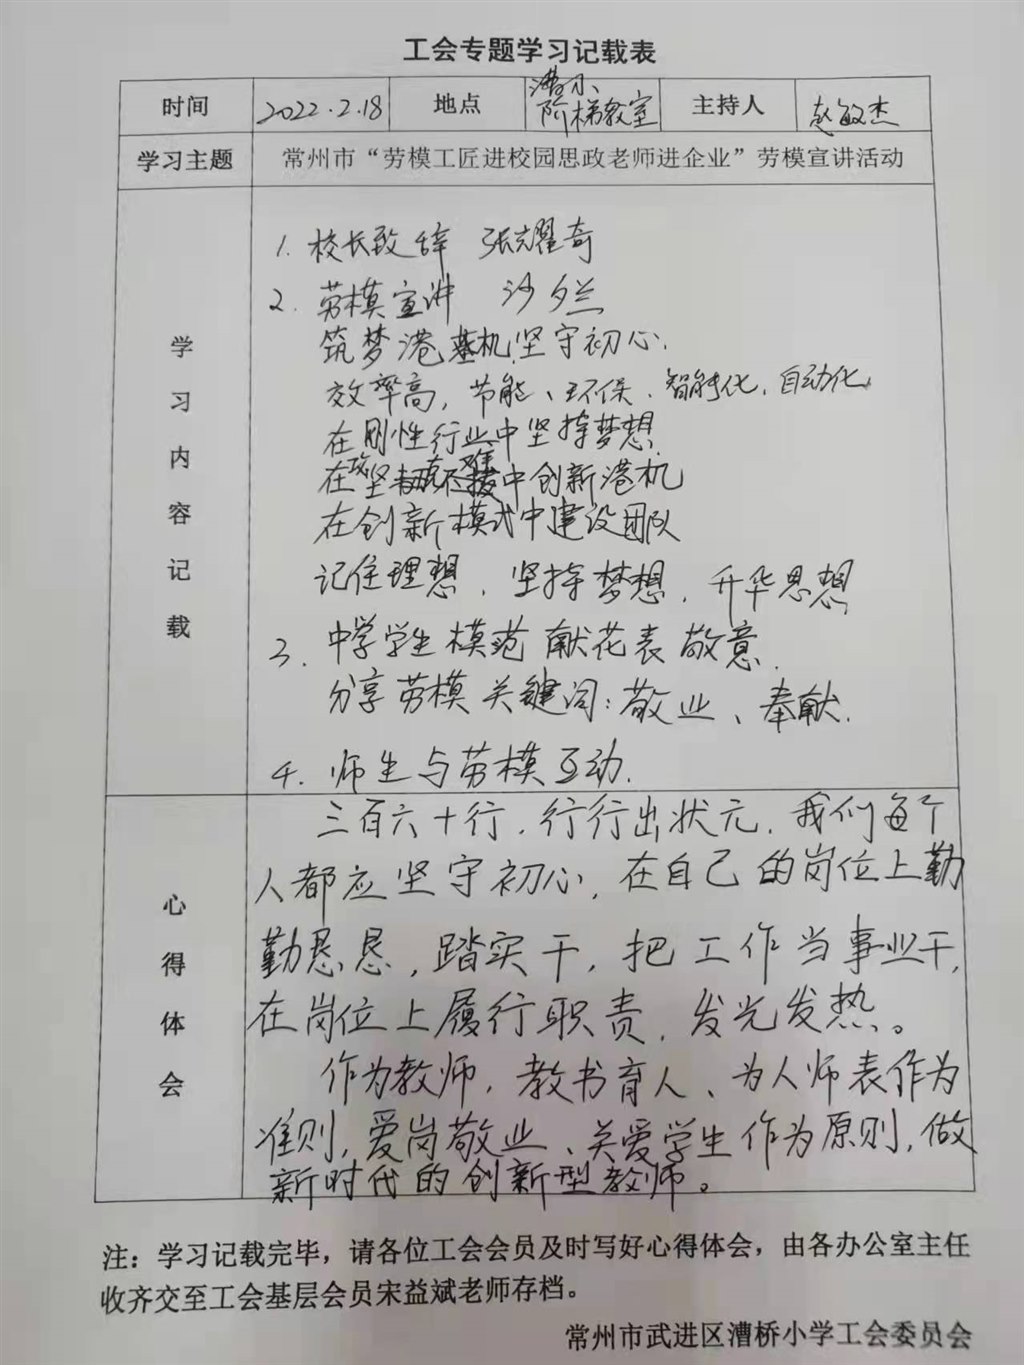 工会专题学习记载表
时间 2022.2.18 地点 漕小 阶梯教室 主持人 赵敏杰
学习主题 常州市“劳模工匠进校园思政老师进企业”劳模宣讲活动
学习内容记载
1. 校长致辞 张耀奇
2. 劳模宣讲 沙夕兰
筑梦港机,坚守初心.
效率高,节能、环保、智能化,自动化
在刚性行业中坚持梦想
在攻坚克难中创新港机
在创新模式中建设团队
记住理想,坚持梦想,升华思想
3. 中学学生模范献花表敬意.
分享劳模关键词:敬业、奉献.
4. 师生与劳模互动.
心得体会
三百六十行,行行出状元,我们每个
人都应坚守初心,在自己的岗位上勤
勤恳恳,踏实干,把工作当事业干,
在岗位上履行职责,发光发热。
作为教师,教书育人、为人师表作为
准则,爱岗敬业、关爱学生作为原则,做
新时代的创新型教师。
注:学习记载完毕,请各位工会会员及时写好心得体会,由各办公室主任
收齐交至工会基层会员宋益斌老师存档。
常州市武进区漕桥小学工会委员会